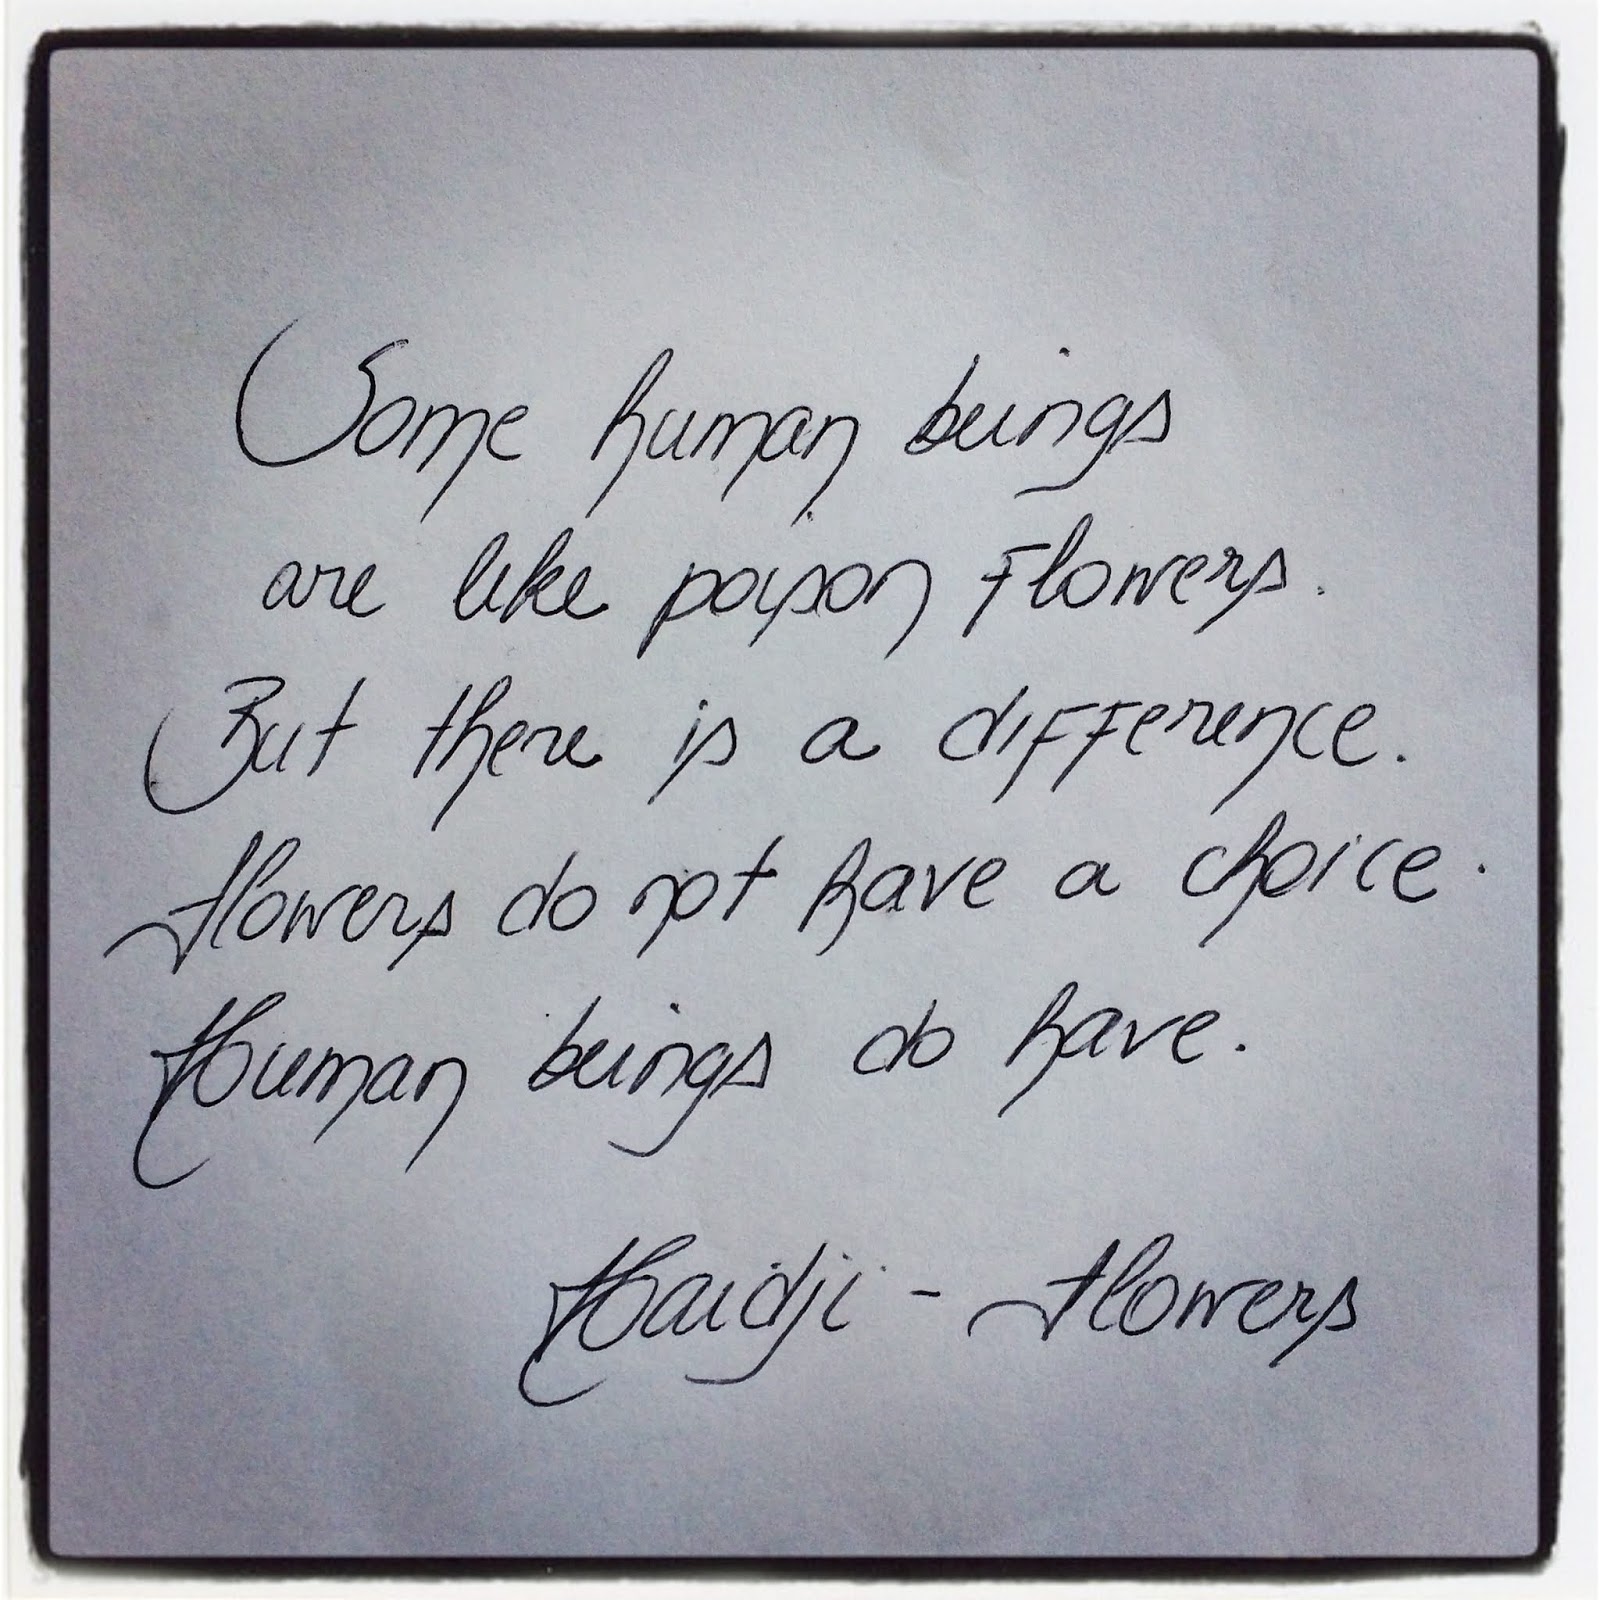 Some human beings
are like poison flowers.
But there is a difference.
Flowers do not have a choice.
Human beings do have.
Haidji - Flowers